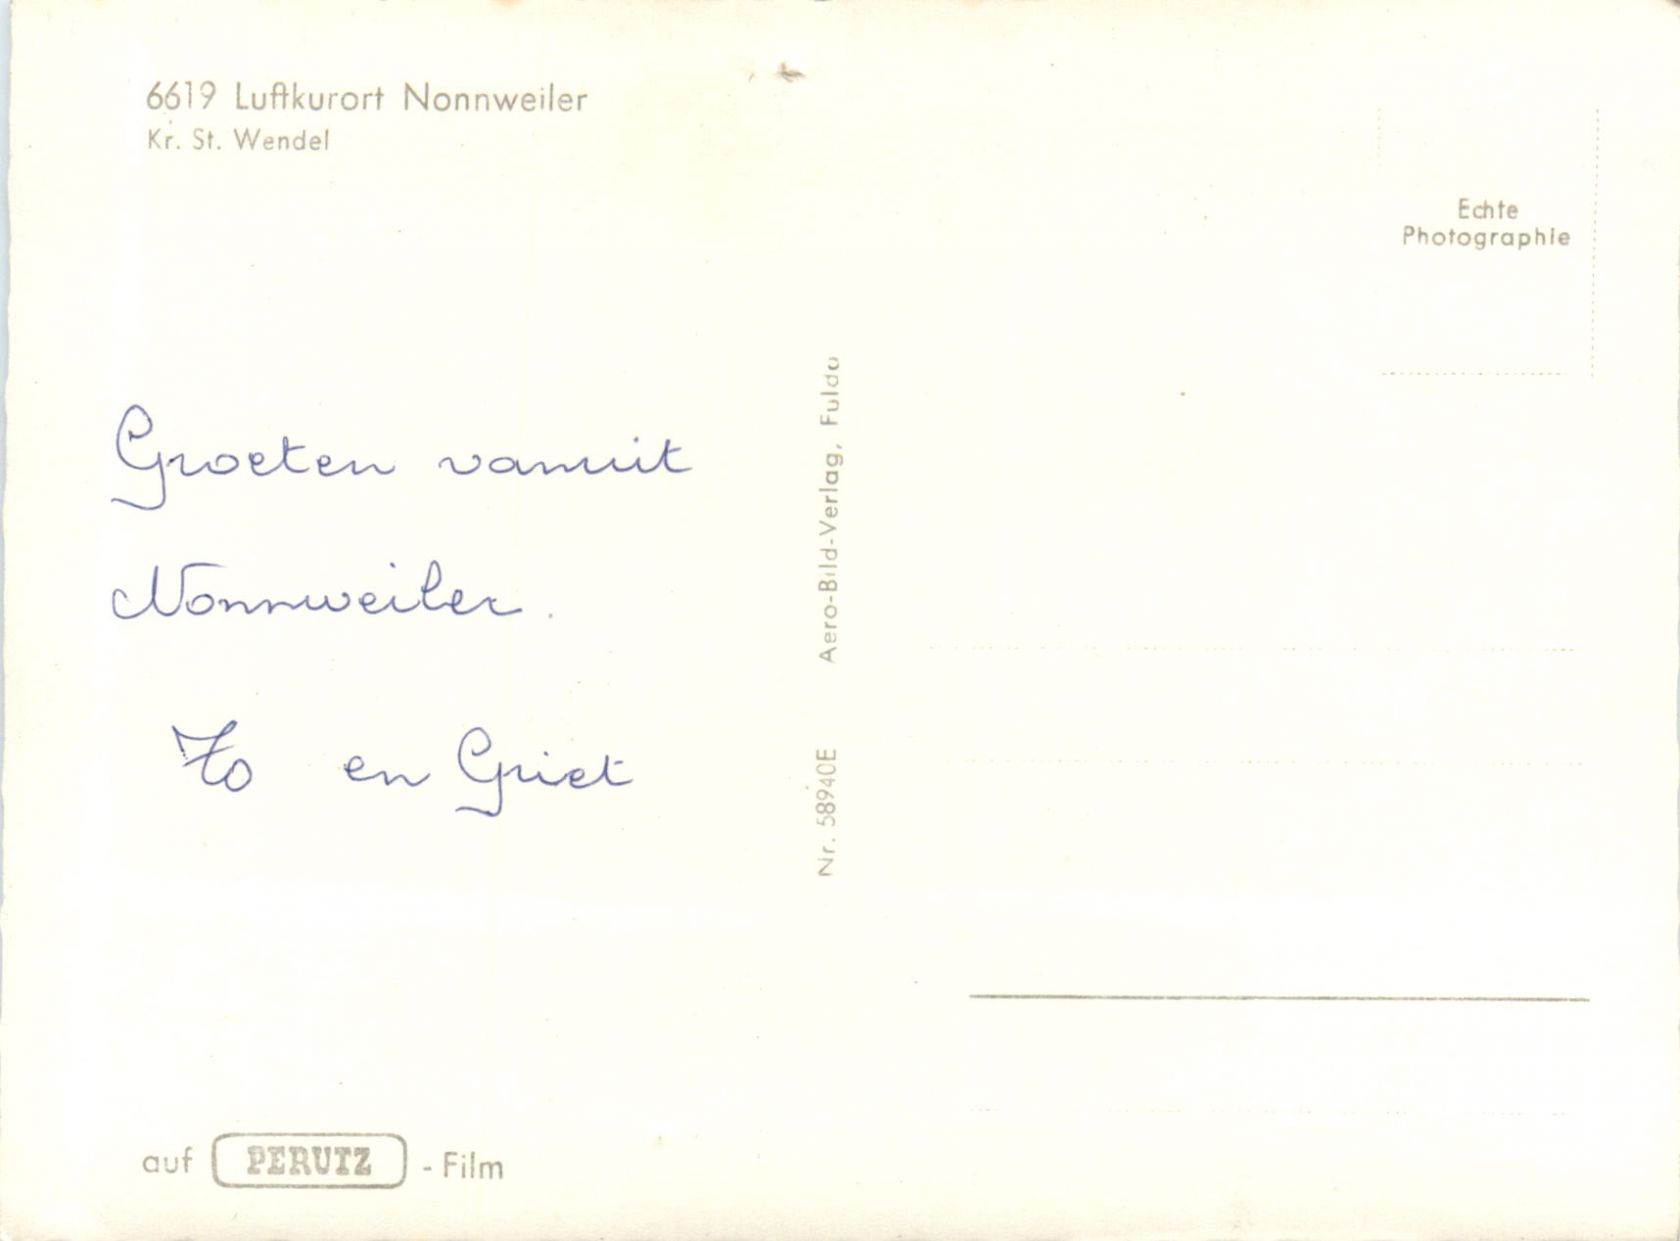 6619 Luftkurort Nonnweiler
Kr. St. Wendel
Echte
Photographie
Groeten vanuit
Nonnweiler.
Jo en Griet
Nr. 58940E Aero-Bild-Verlag, Fulda
auf PERUTZ - Film